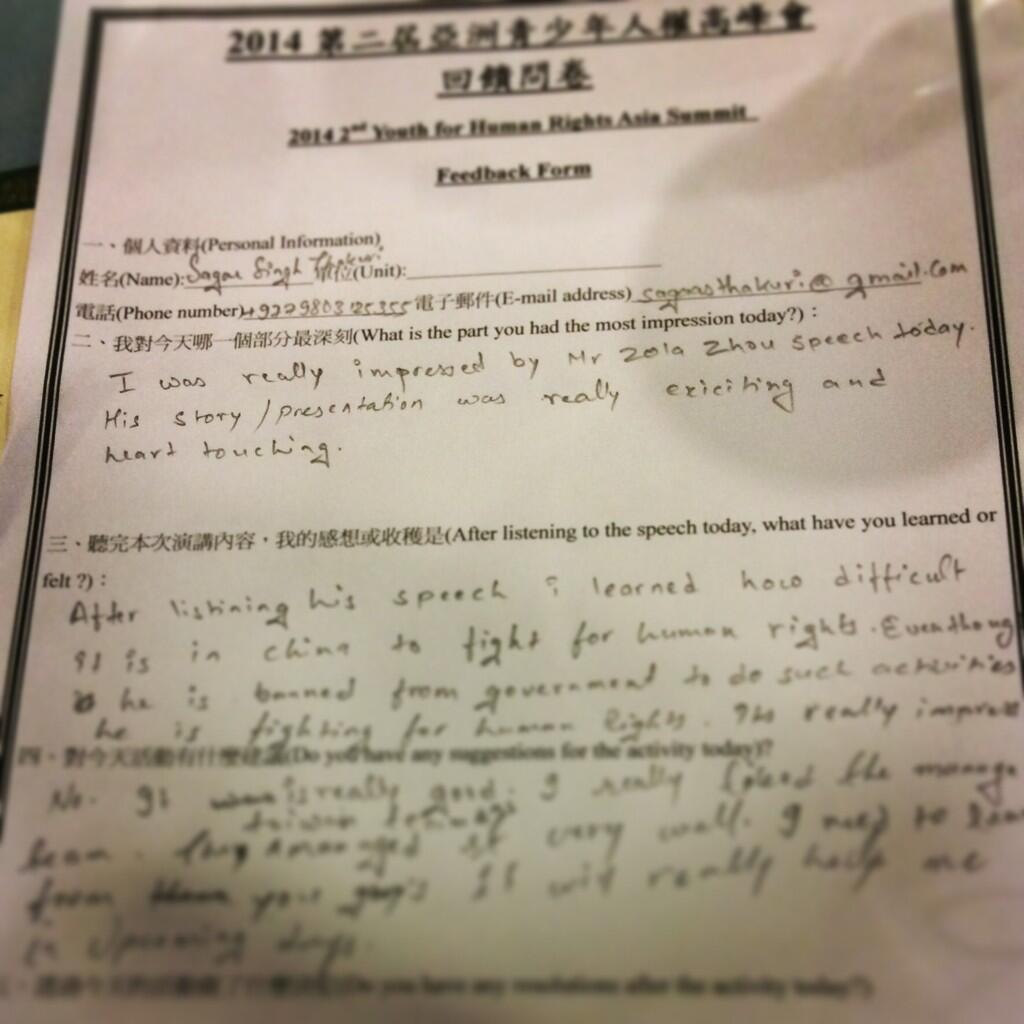 2014 第二屆亞洲青少年人權高峰會
回饋問卷
2014 2nd Youth for Human Rights Asia Summit
Feedback Form
一、個人資料(Personal Information)
姓名(Name): Sagar Singh Thakuri 單位(Unit):
電話(Phone number) 電子郵件(E-mail address) @ gmail.com
二、我對今天哪一個部分最深刻(What is the part you had the most impression today?)：
I was really impressed by Mr Zola Zhou speech today.
His story/presentation was really exiciting and
heart touching.
三、聽完本次演講內容，我的感想或收穫是(After listening to the speech today, what have you learned or
felt ?)：
After listining his speech i learned how difficult
It is in china to fight for human rights. Eventhoug
he is banned from government to do such activities
he is fighting for human Rights. really impress
四、對今天活動有什麼建議(Do you have any suggestions for the activity today)?
No. It is really good. I really the manage
team. They it very well. I need to
from your It will really help me
in upcoming days.
(Do you have any resolutions after the activity today?)